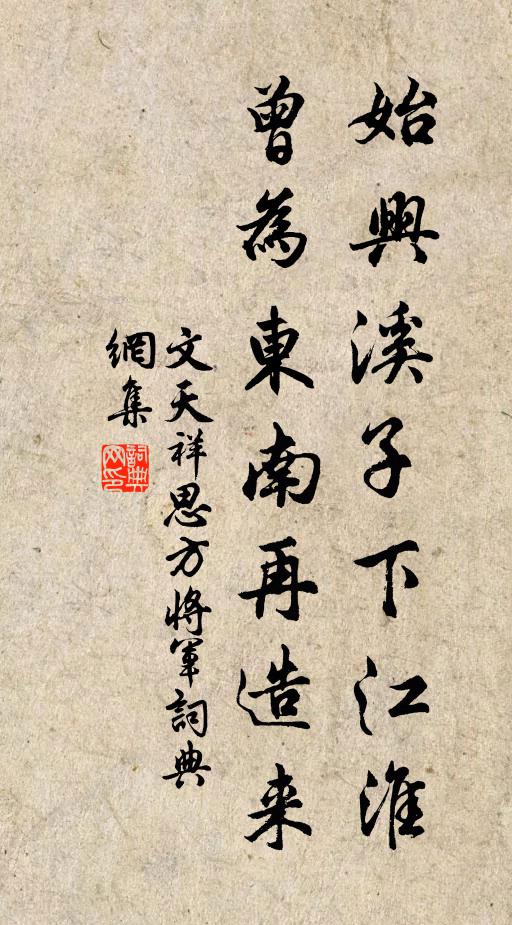 始興溪子下江淮
曾為東南再造来
文天祥思方將軍詞典
網集
詞典
网印